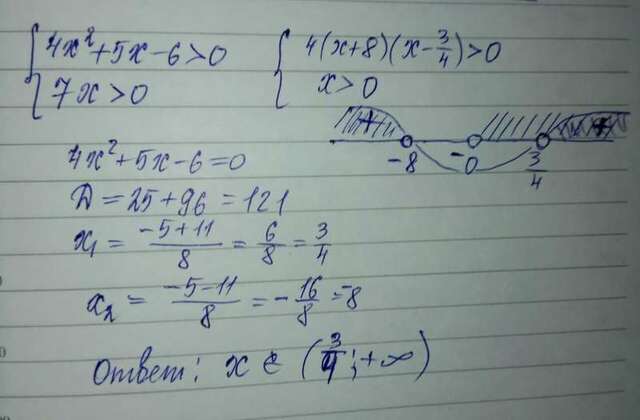 4x²+5x-6>0
7x>0
4(x+8)(x-3/4)>0
x>0
+ +
-8 - 0 3/4
4x²+5x-6=0
Д=25+96=121
x₁ = (-5+11)/8 = 6/8 = 3/4
x₂ = (-5-11)/8 = -16/8 = -8
Ответ: x ∈ (3/4; +∞)